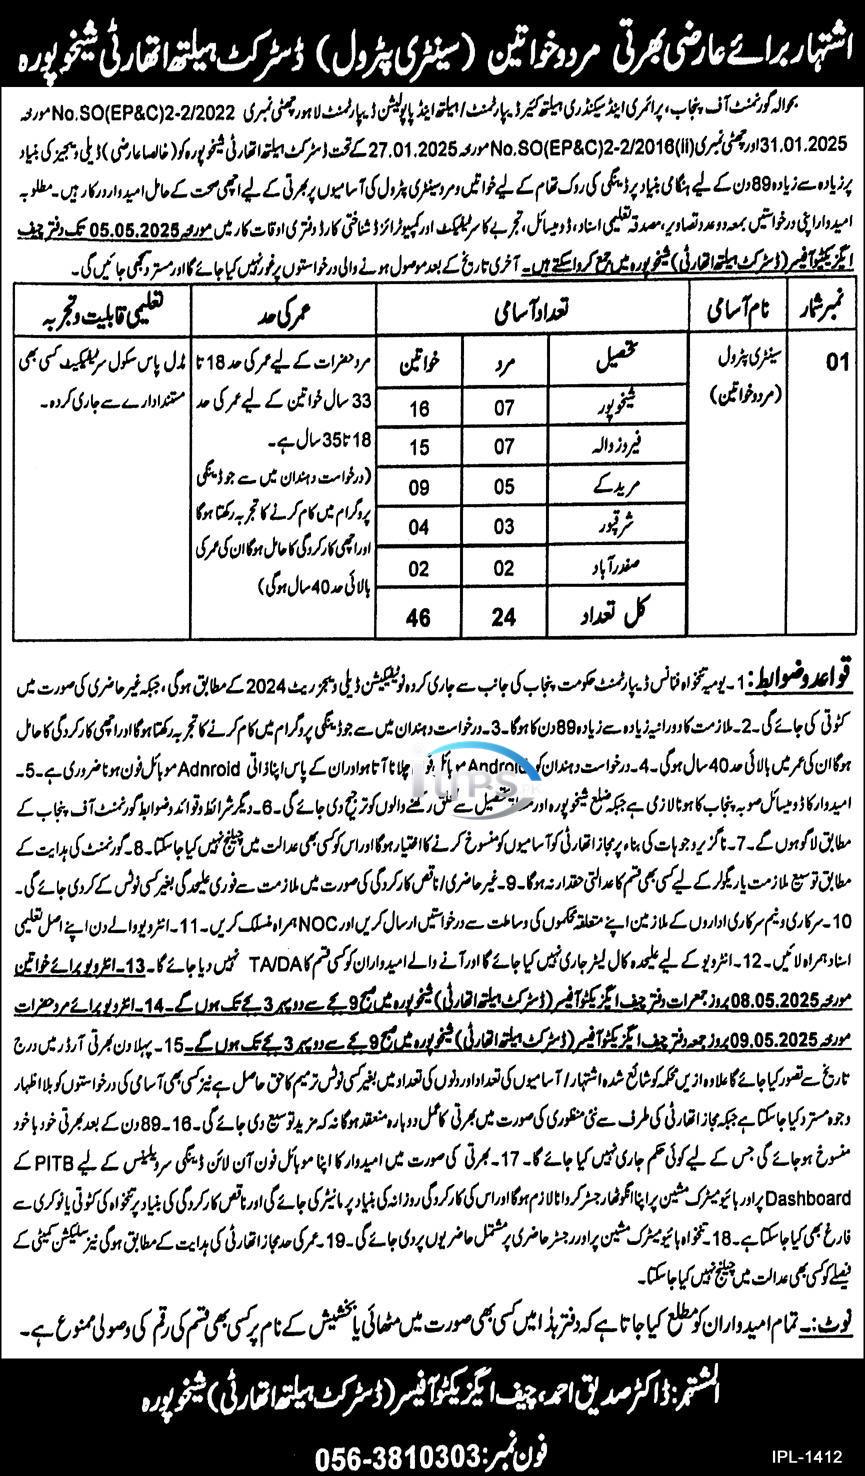 اشتہار برائے عارضی بھرتی مرد و خواتین (سینٹری پٹرول) ڈسٹرکٹ ہیلتھ اتھارٹی شیخوپورہ
بحوالہ گورنمنٹ آف پنجاب، پرائمری اینڈ سیکنڈری ہیلتھ کئیر ڈیپارٹمنٹ/ ہیلتھ اینڈ پاپولیشن ڈیپارٹمنٹ لاہور چھٹی نمبری No.SO(EP&C)2-2/2022 مورخہ
31.01.2025 اور چھٹی نمبری No.SO(EP&C)2-2/2016(ii) مورخہ 27.01.2025 کے تحت ڈسٹرکٹ ہیلتھ اتھارٹی شیخوپورہ کو (خالصتاً عارضی) ڈیلی ویجیز کی بنیاد
پر زیادہ سے زیادہ 89 دن کے لیے ہنگامی بنیاد پر ڈینگی کی روک تھام کے لیے خواتین و مرد سینٹری پٹرول کی آسامیوں پر بھرتی کے لیے اچھی صحت کے حامل امیدوار درکار ہیں۔ مطلوبہ
امیدوار اپنی درخواستیں بمعہ دو عدد تصاویر، مصدقہ تعلیمی اسناد، ڈومیسائل، تجربے کا سرٹیفکیٹ اور کمپیوٹرائزڈ شناختی کارڈ دفتری اوقات کار میں مورخہ 05.05.2025 تک دفتر چیف
ایگزیکٹو آفیسر (ڈسٹرکٹ ہیلتھ اتھارٹی) شیخوپورہ میں جمع کروا سکتے ہیں۔ آخری تاریخ کے بعد موصول ہونے والی درخواستوں پر غور نہیں کیا جائے گا اور مسترد سمجھی جائیں گی۔
نمبر شمار نام آسامی تعداد آسامی عمر کی حد تعلیمی قابلیت و تجربہ
01 سینٹری پٹرول (مرد و خواتین)
تحصیل مرد خواتین
شیخوپورہ 07 16
فیروزوالہ 07 15
مریدکے 05 09
شرقپور 03 04
صفدرآباد 02 02
کل تعداد 24 46
مرد حضرات کے لیے عمر کی حد 18 تا
33 سال خواتین کے لیے عمر کی حد
18 تا 35 سال ہے۔
(درخواست دہندان میں سے جو ڈینگی
پروگرام میں کام کرنے کا تجربہ رکھتا ہوگا
اور اچھی کارکردگی کا حامل ہوگا ان کی عمر کی
بالائی حد 40 سال ہوگی)
مڈل پاس سکول سرٹیفکیٹ کسی بھی
مستند ادارے سے جاری کردہ۔
قواعد و ضوابط: 1۔ یومیہ تنخواہ فنانس ڈیپارٹمنٹ حکومت پنجاب کی جانب سے جاری کردہ نوٹیفکیشن ڈیلی ویجیز ریٹ 2024 کے مطابق ہوگی، جبکہ غیر حاضری کی صورت میں
کٹوتی کی جائے گی۔ 2۔ ملازمت کا دورانیہ زیادہ سے زیادہ 89 دن کا ہوگا۔ 3۔ درخواست دہندان میں سے جو ڈینگی پروگرام میں کام کرنے کا تجربہ رکھتا ہوگا اور اچھی کارکردگی کا حامل
ہوگا ان کی عمر میں بالائی حد 40 سال ہوگی۔ 4۔ درخواست دہندان کو Android موبائل فون چلانا آتا ہو اور ان کے پاس اپنا ذاتی Adnroid موبائل فون ہونا ضروری ہے۔ 5۔
امیدوار کا ڈومیسائل صوبہ پنجاب کا ہونا لازمی ہے جبکہ ضلع شیخوپورہ اور تحصیل سے تعلق رکھنے والوں کو ترجیح دی جائے گی۔ 6۔ دیگر شرائط و قواعد و ضوابط گورنمنٹ آف پنجاب کے
مطابق لاگو ہوں گے۔ 7۔ ناگزیر وجوہات کی بناء پر مجاز اتھارٹی کو آسامیوں کو منسوخ کرنے کا اختیار ہوگا اور اس کو کسی بھی عدالت میں چیلنج نہیں کیا جا سکتا۔ 8۔ گورنمنٹ کی ہدایت کے
مطابق توسیع ملازمت یا ریگولر کے لیے کسی بھی قسم کا عدالتی حقدار نہ ہوگا۔ 9۔ غیر حاضری/ ناقص کارکردگی کی صورت میں ملازمت سے فوری علیحدگی بغیر کسی نوٹس کے کر دی جائے گی۔
10۔ سرکاری و نیم سرکاری اداروں کے ملازمین اپنے متعلقہ محکموں کی وساطت سے درخواستیں ارسال کریں اور NOC ہمراہ منسلک کریں۔ 11۔ انٹرویو والے دن اپنے اصل تعلیمی
اسناد ہمراہ لائیں۔ 12۔ انٹرویو کے لیے علیحدہ کال لیٹر جاری نہیں کیا جائے گا اور آنے والے امیدواران کو کسی قسم کا TA/DA نہیں دیا جائے گا۔ 13۔ انٹرویو برائے خواتین
مورخہ 08.05.2025 بروز جمعرات دفتر چیف ایگزیکٹو آفیسر (ڈسٹرکٹ ہیلتھ اتھارٹی) شیخوپورہ میں صبح 9 بجے سے دوپہر 3 بجے تک ہوں گے۔ 14۔ انٹرویو برائے مرد حضرات
مورخہ 09.05.2025 بروز جمعہ دفتر چیف ایگزیکٹو آفیسر (ڈسٹرکٹ ہیلتھ اتھارٹی) شیخوپورہ میں صبح 9 بجے سے دوپہر 3 بجے تک ہوں گے۔ 15۔ پہلا دن بھرتی آرڈر میں درج
تاریخ سے تصور کیا جائے گا علاوہ ازیں محکمہ کو شائع شدہ اشتہار/ آسامیوں کی تعداد اور دنوں کی تعداد میں بغیر کسی نوٹس ترمیم کا حق حاصل ہے نیز کسی بھی آسامی کی درخواستوں کو بلا اظہار
وجوہ مسترد کیا جا سکتا ہے جبکہ مجاز اتھارٹی کی طرف سے نئی منظوری کی صورت میں بھرتی کا عمل دوبارہ منعقد ہوگا نہ کہ مزید توسیع دی جائے گی۔ 16۔ 89 دن کے بعد بھرتی خود باخود
منسوخ ہو جائے گی جس کے لیے کوئی حکم جاری نہیں کیا جائے گا۔ 17۔ بھرتی کی صورت میں امیدوار کا اپنا موبائل فون آن لائن ڈینگی سرویلینس کے لیے PITB کے
Dashboard پر اور بائیومیٹرک مشین پر اپنا انگوٹھا رجسٹر کروانا لازم ہوگا اور اس کی کارکردگی روزانہ کی بنیاد پر مانیٹر کی جائے گی اور ناقص کارکردگی کی بنیاد پر تنخواہ کی کٹوتی یا نوکری سے
فارغ بھی کیا جا سکتا ہے۔ 18۔ تنخواہ بائیومیٹرک مشین پر اور رجسٹر حاضری پر مشتمل حاضریوں پر دی جائے گی۔ 19۔ عمر کی حد مجاز اتھارٹی کی ہدایت کے مطابق ہوگی نیز سلیکشن کمیٹی کے
فیصلے کو کسی بھی عدالت میں چیلنج نہیں کیا جا سکتا۔
نوٹ:۔ تمام امیدواران کو مطلع کیا جاتا ہے کہ دفتر ہذا میں کسی بھی صورت میں مٹھائی یا بخشیش کے نام پر کسی بھی قسم کی رقم کی وصولی ممنوع ہے۔
المشتہر: ڈاکٹر صدیق احمد، چیف ایگزیکٹو آفیسر (ڈسٹرکٹ ہیلتھ اتھارٹی) شیخوپورہ
فون نمبر: 056-3810303
IPL-1412